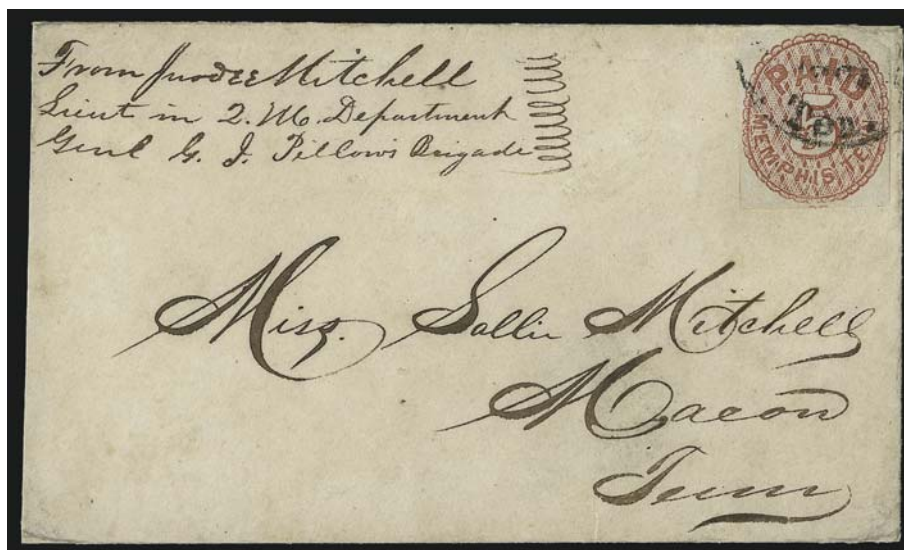 From Jno Mitchell
Lieut in Q. M. Department
Genl G. J. Pillow's Brigade
PAID
5
MEMPHIS, TEN.
Ten.
Miss. Sallie Mitchell
Macon
Tenn